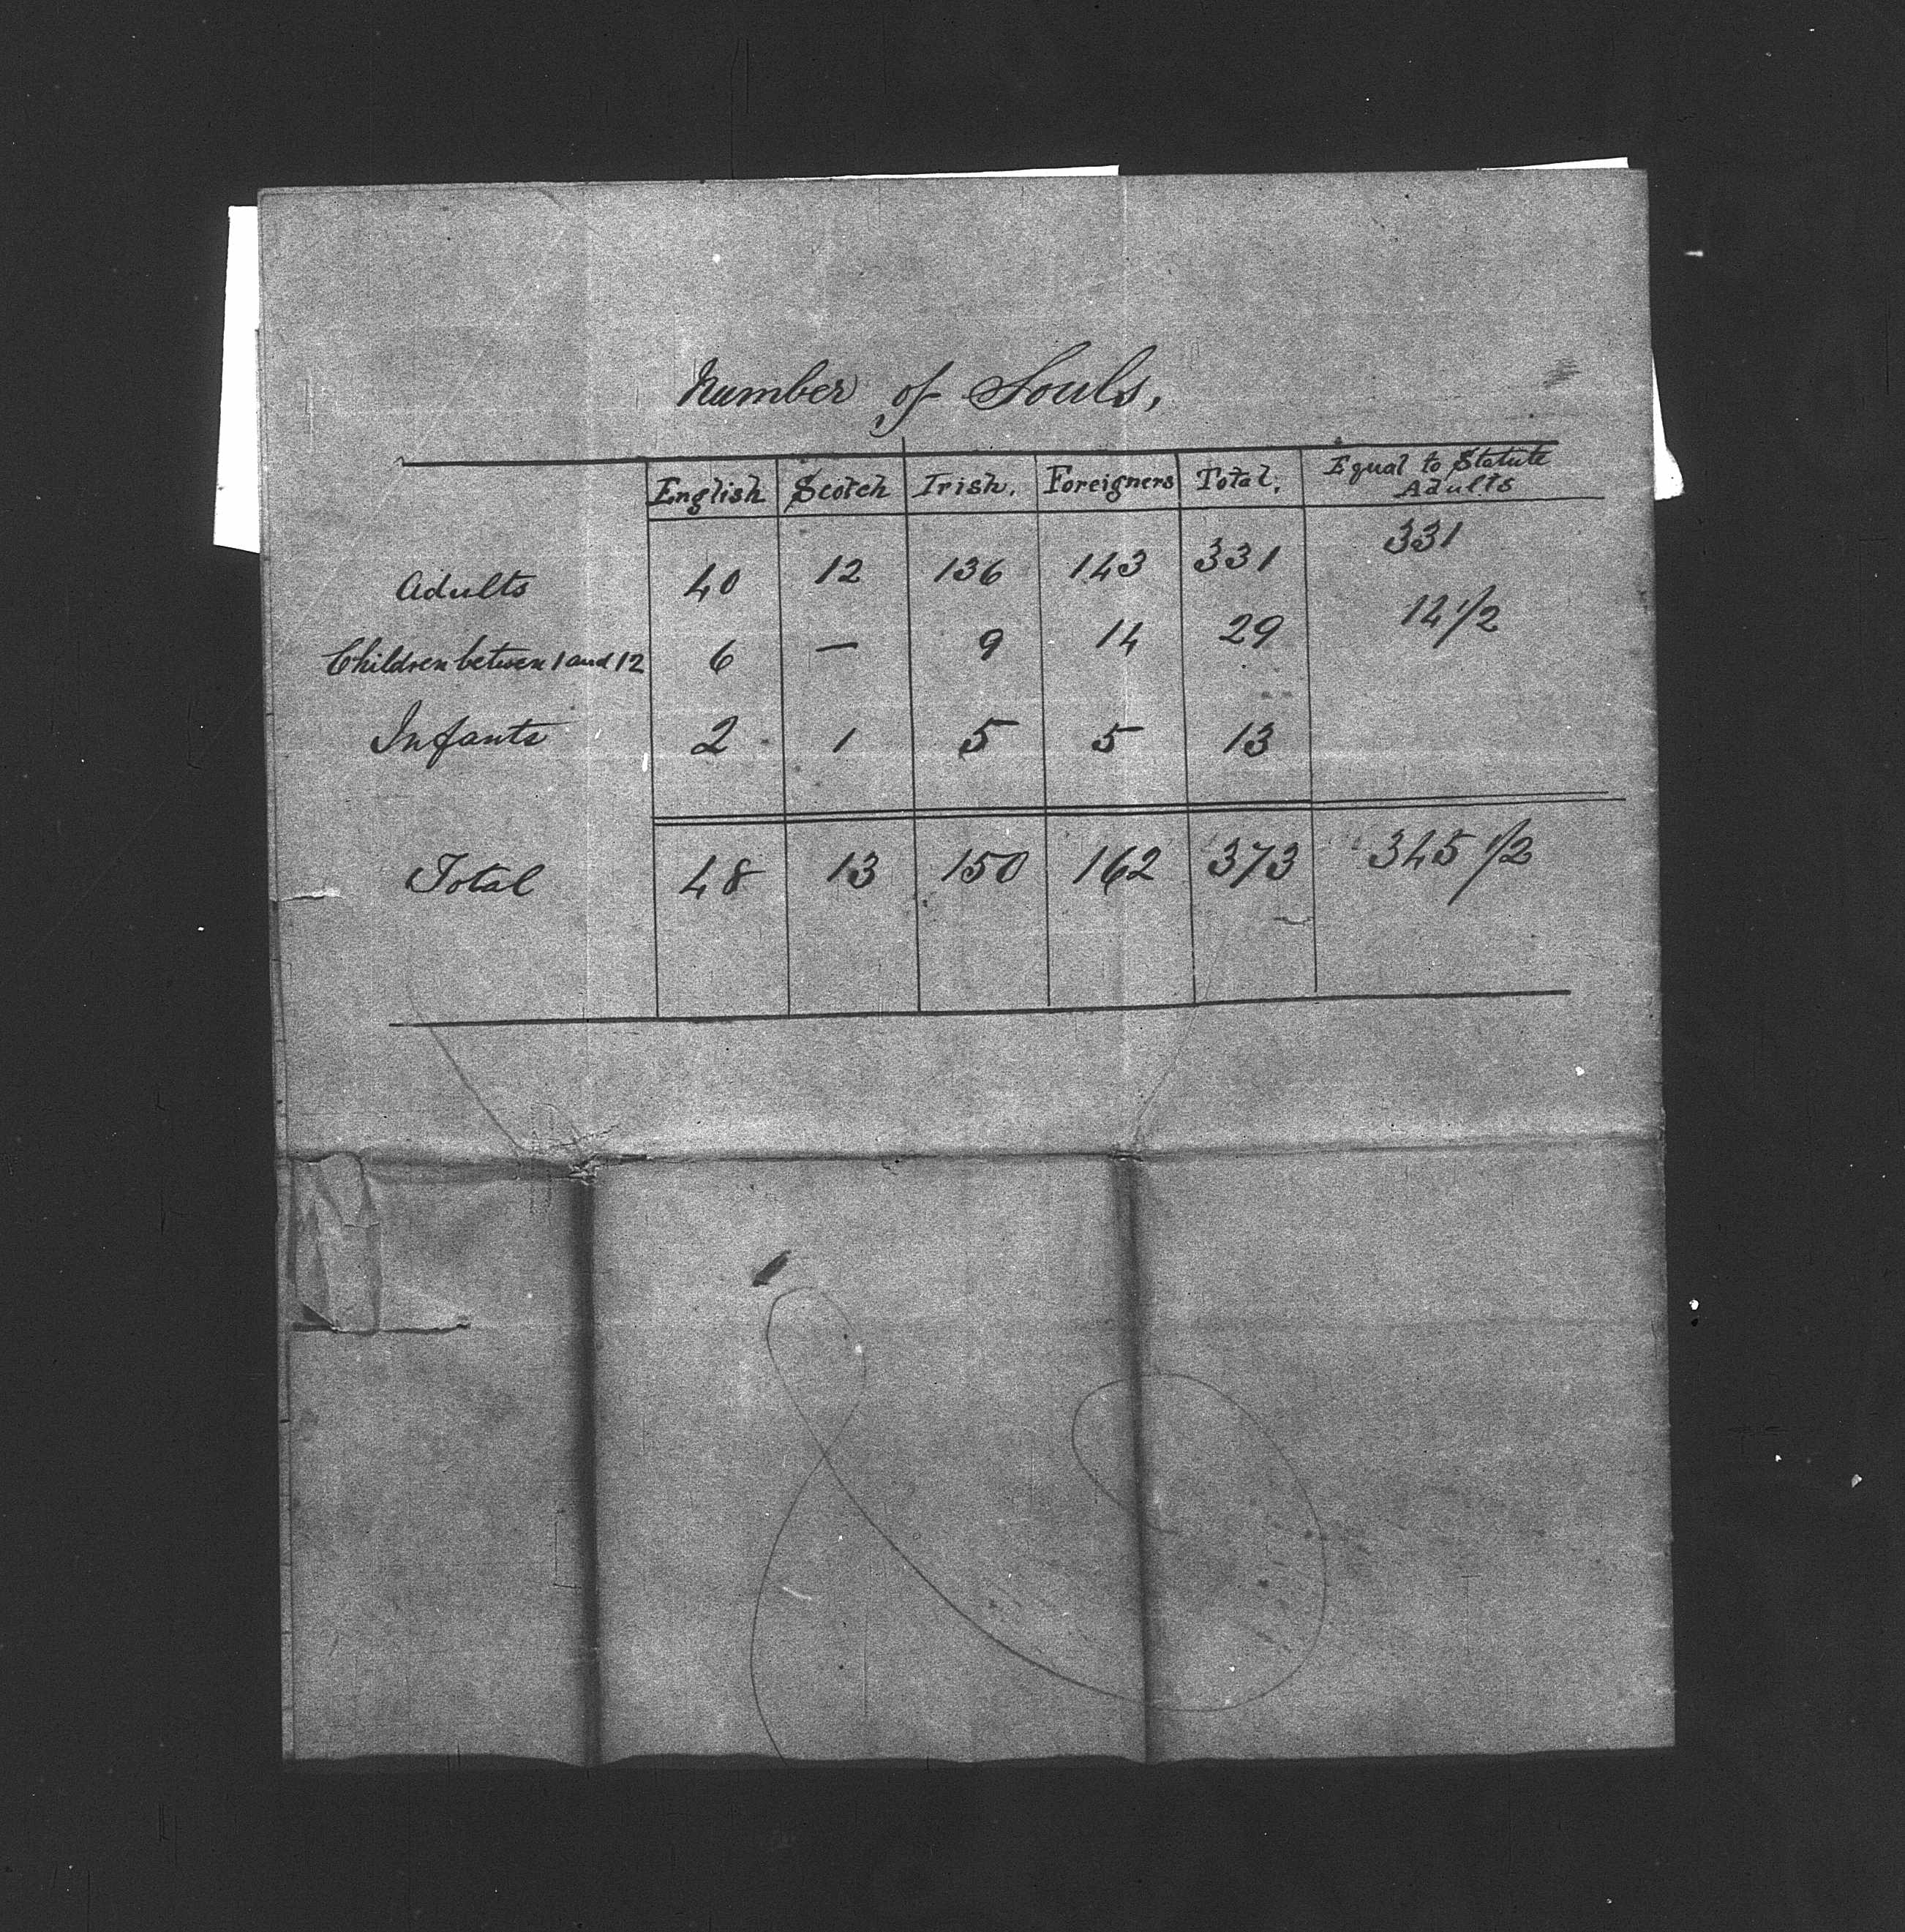 Number of Souls,
English Scotch Irish. Foreigners Total. Equal to Statute Adults
Adults 40 12 136 143 331 331
Children between 1 and 12 6 — 9 14 29 14 1/2
Infants 2 1 5 5 13
Total 48 13 150 162 373 345 1/2